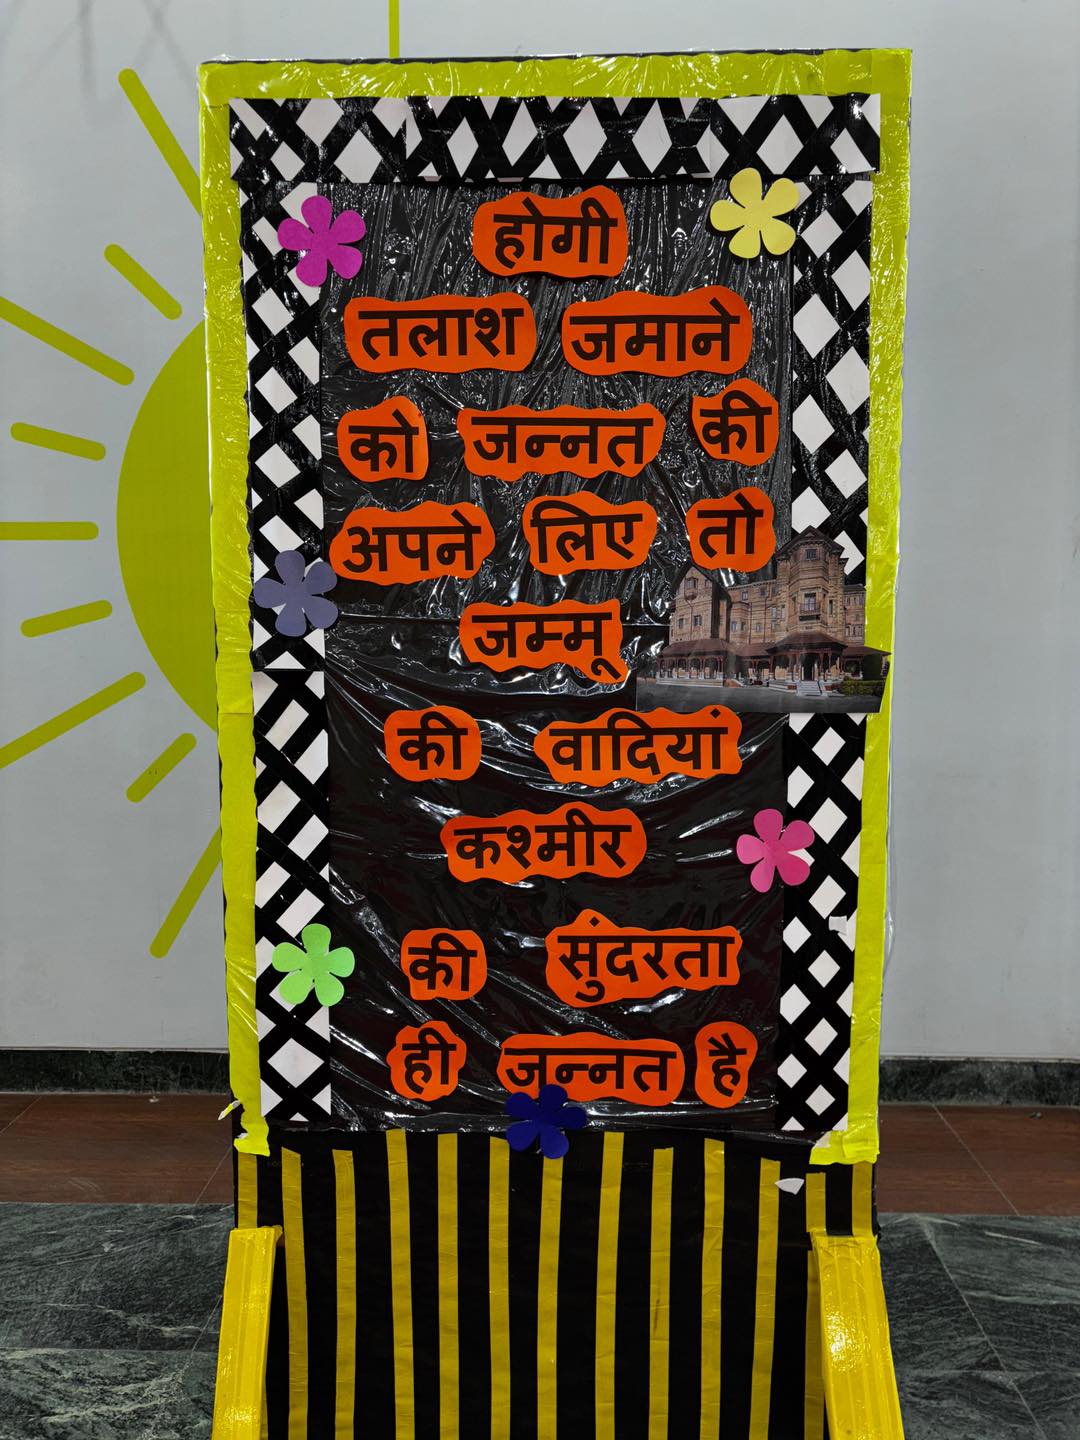 होगी
तलाश जमाने
को जन्नत की
अपने लिए तो
जम्मू
की वादियां
कश्मीर
की सुंदरता
ही जन्नत है